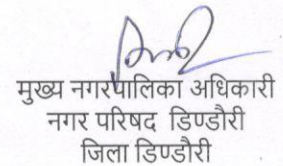 मुख्य नगरपालिका अधिकारी
नगर परिषद डिण्डौरी
जिला डिण्डौरी